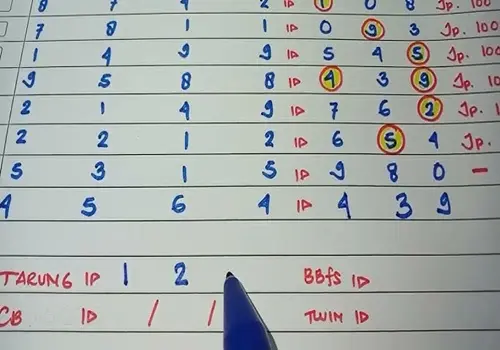 8 7 1 2 ID 1 0 8 Jp. 100
7 8 1 1 ID 0 9 3 Jp. 100
1 4 9 9 ID 5 4 5 Jp. 100
9 5 8 8 ID 4 3 9 Jp. 10
2 1 4 9 ID 7 6 2 Jp. 1
2 2 1 2 ID 6 5 4 Jp.
5 3 1 5 ID 9 8 0 -
4 5 6 4 ID 4 3 9
TARUNG ID 1 2 BBfS ID
CB ID / / TWIN ID